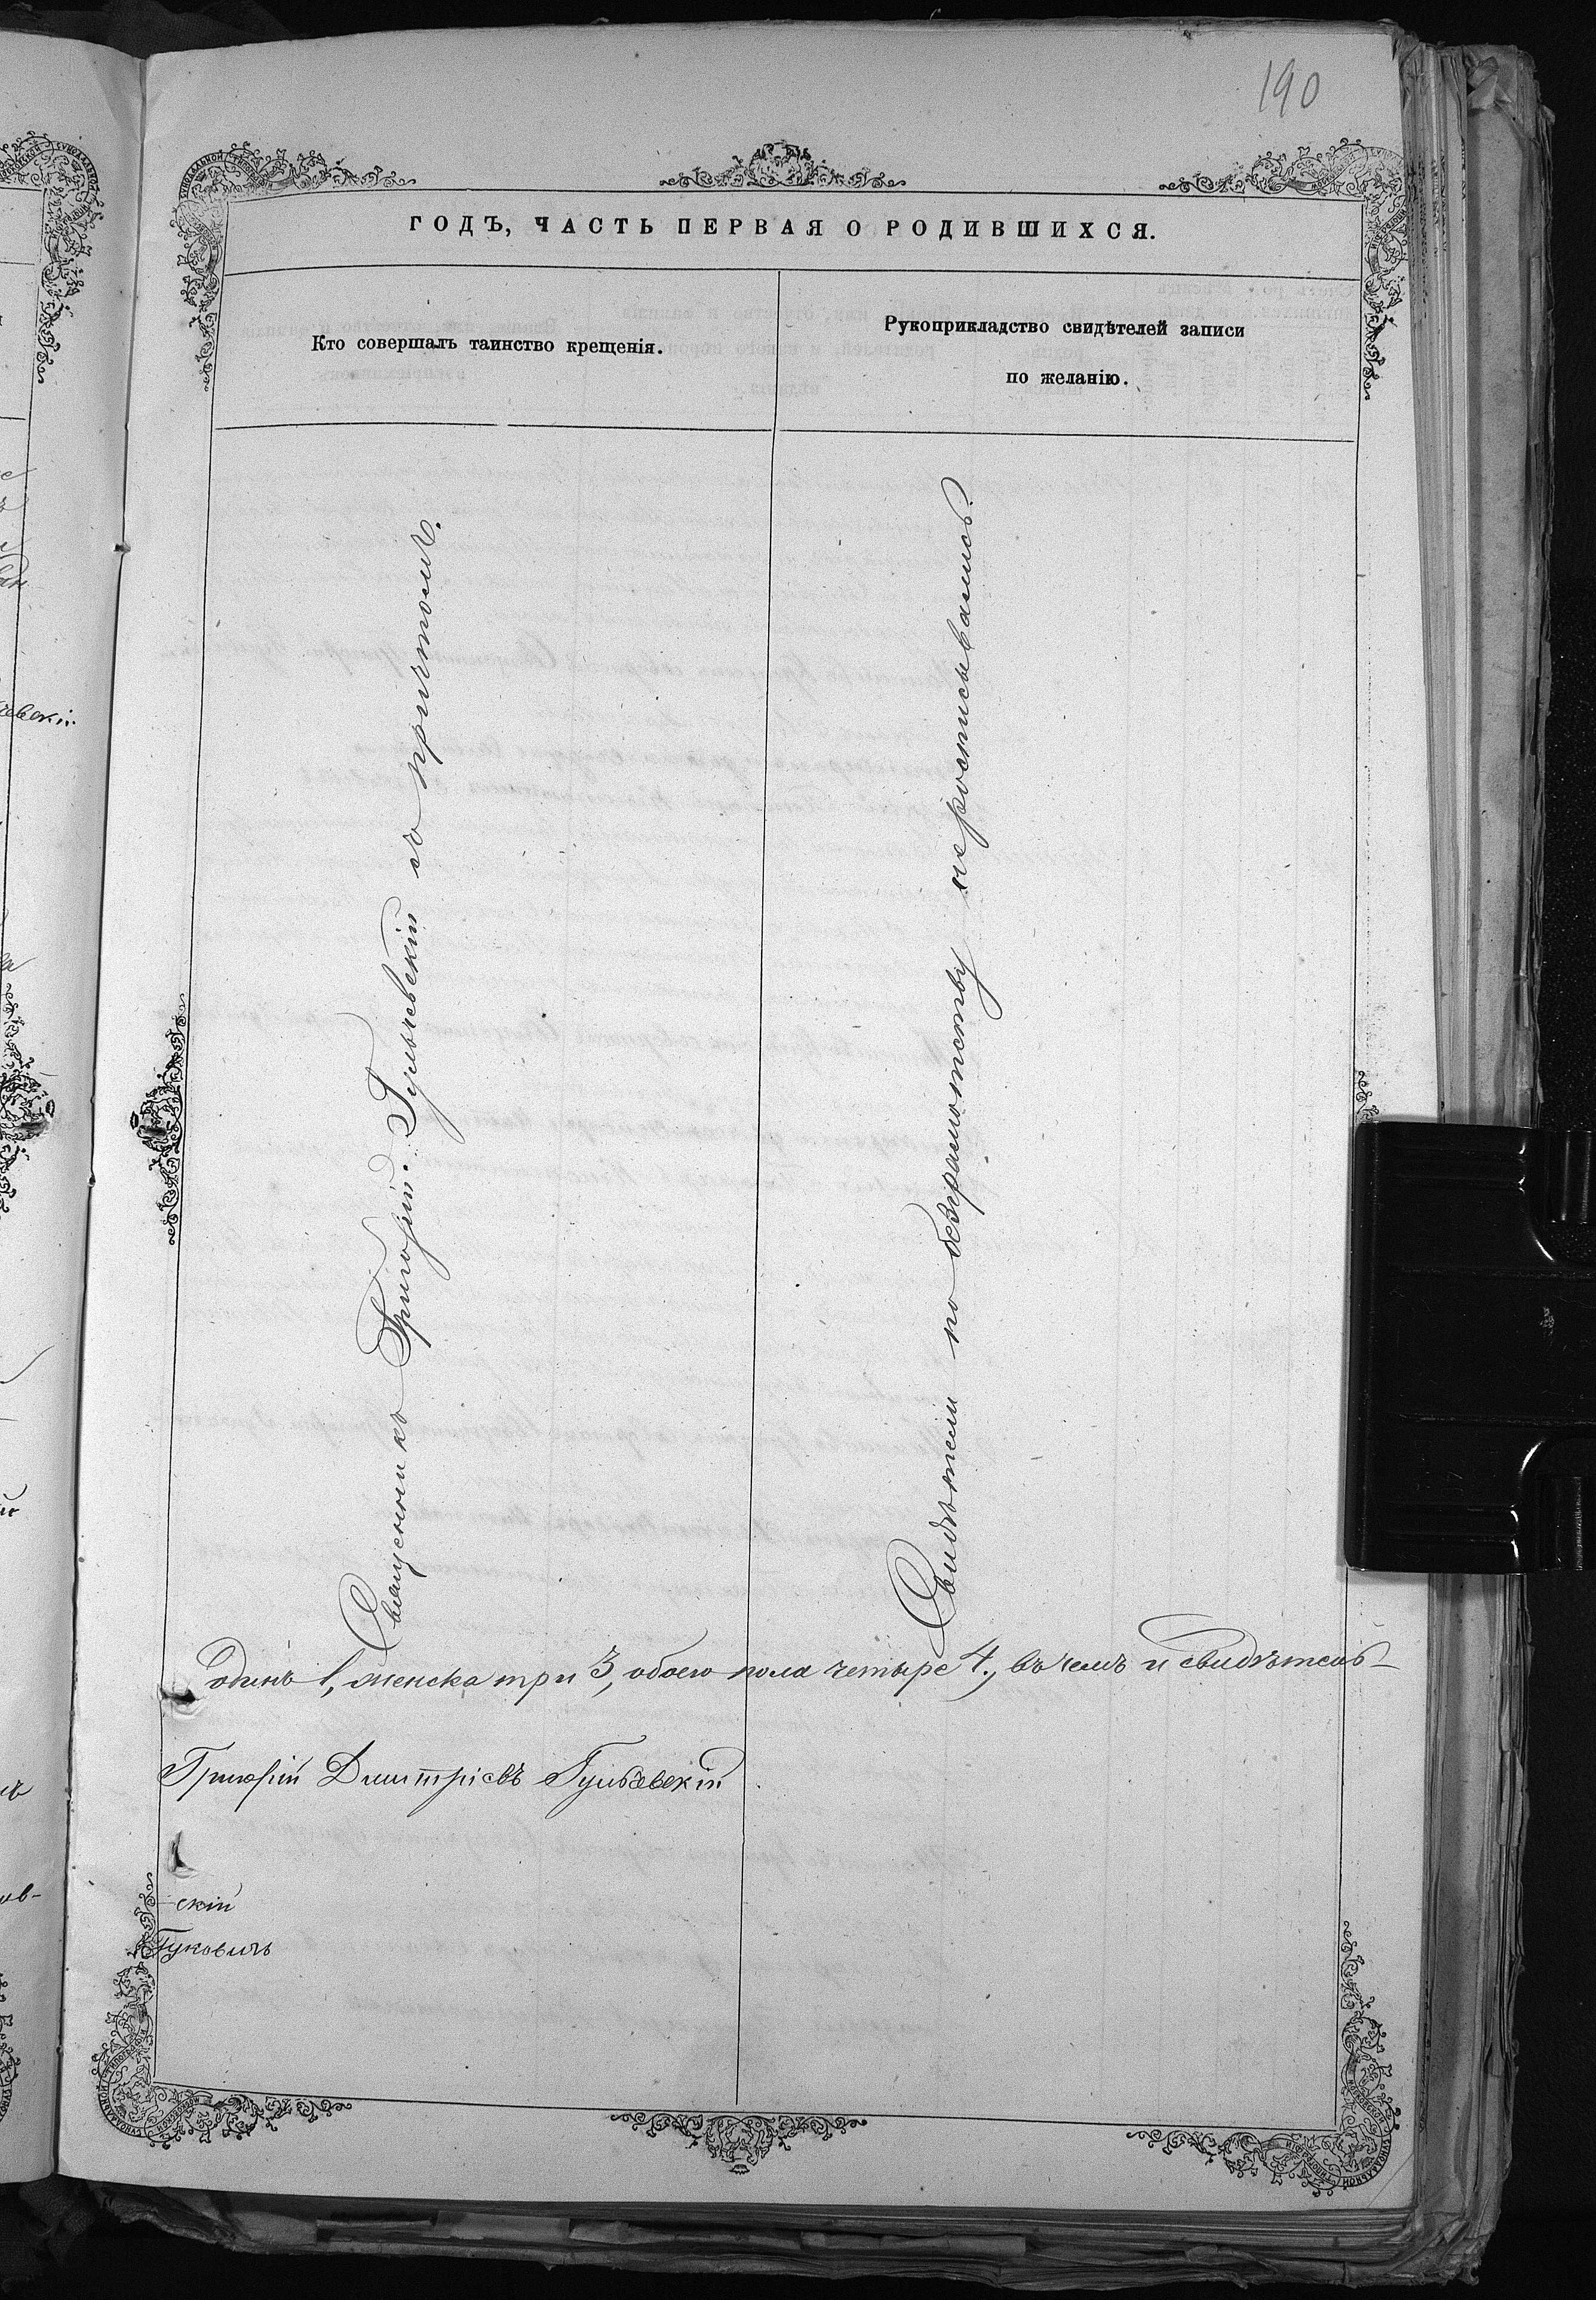 190
ГОДЪ, ЧАСТЬ ПЕРВАЯ О РОДИВШИХСЯ.
Кто совершалъ таинство крещенія.
Рукоприкладство свидѣтелей записи
по желанію.
Священникъ Григорій Гульчевскій съ причтомъ.
Свидѣтели по безграмотству не росписывались.
одинъ 1, женска три 3, обоего пола четыре 4., въ чемъ и свидѣтель-
Григорій Дмитріевъ Гульчевскій
скій
Гуковичъ